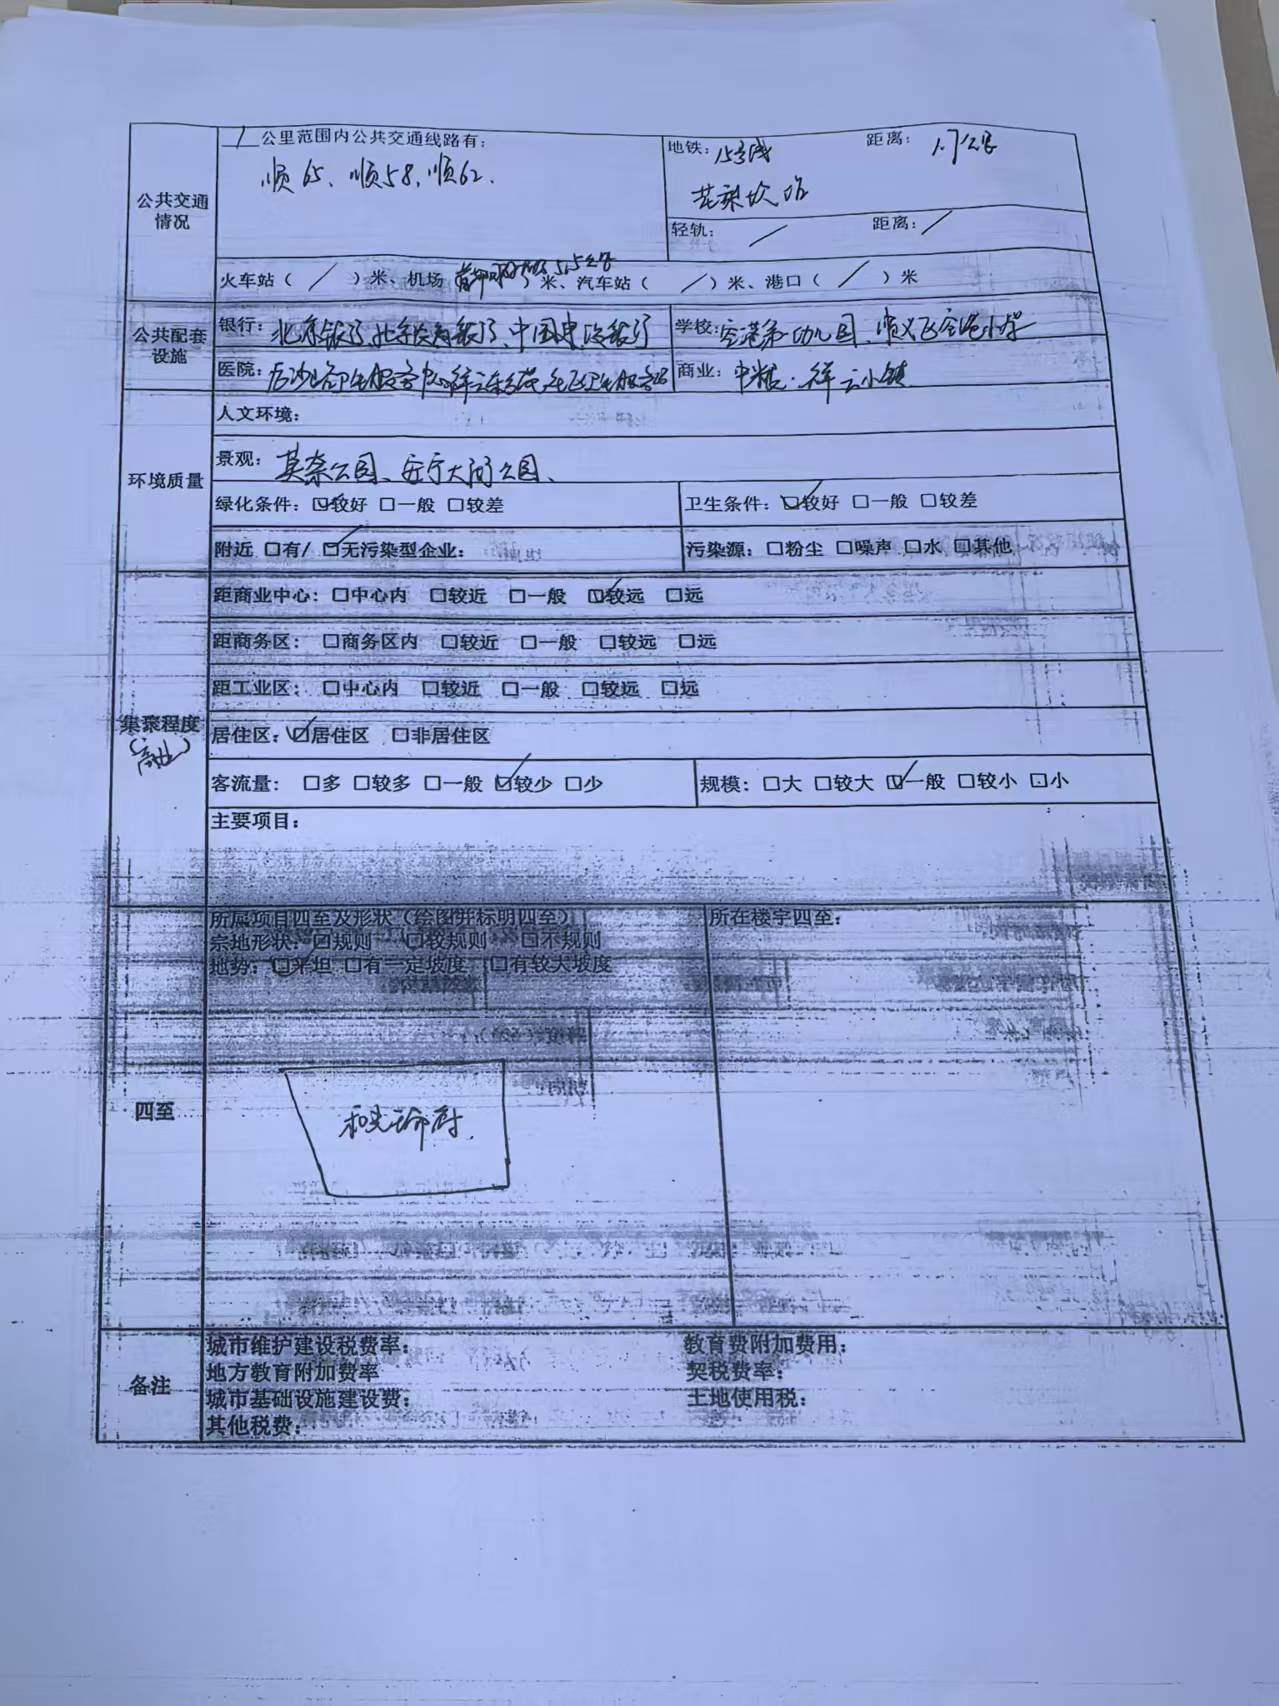 1 公里范围内公共交通线路有:
顺65、顺58、顺62.
地铁: 15号线 距离: 1.7公里
花梨坎站
公共交通情况
轻轨: / 距离: /
火车站( / )米、机场 首都 5.5公里 )米、汽车站( / )米、港口( / )米
公共配套设施
银行: 北京银行、北京农商银行、中国 银行
学校: 空港第一幼儿园、顺义区空港小学
医院: 后沙峪卫生服务中心 社区卫生服务站
商业: 中粮·祥云小镇
环境质量
人文环境:
景观: 莫奈公园、 公园、
绿化条件: ☑较好 □一般 □较差
卫生条件: ☑较好 □一般 □较差
附近 □有/ ☑无污染型企业:
污染源: □粉尘 □噪声 □水 □其他
集聚程度
(商业)
距商业中心: □中心内 □较近 □一般 ☑较远 □远
距商务区: □商务区内 □较近 □一般 □较远 □远
距工业区: □中心内 □较近 □一般 □较远 □远
居住区: ☑居住区 □非居住区
客流量: □多 □较多 □一般 ☑较少 □少
规模: □大 □较大 ☑一般 □较小 □小
主要项目:
四至
所属项目四至及形状(绘图并标明四至)
宗地形状: □规则 ☑较规则 □不规则
地势: ☑平坦 □有一定坡度 □有较大坡度
所在楼宇四至:
和光瑜府
备注
城市维护建设税费率: 教育费附加费用:
地方教育附加费率 契税费率:
城市基础设施建设费: 土地使用税:
其他税费: